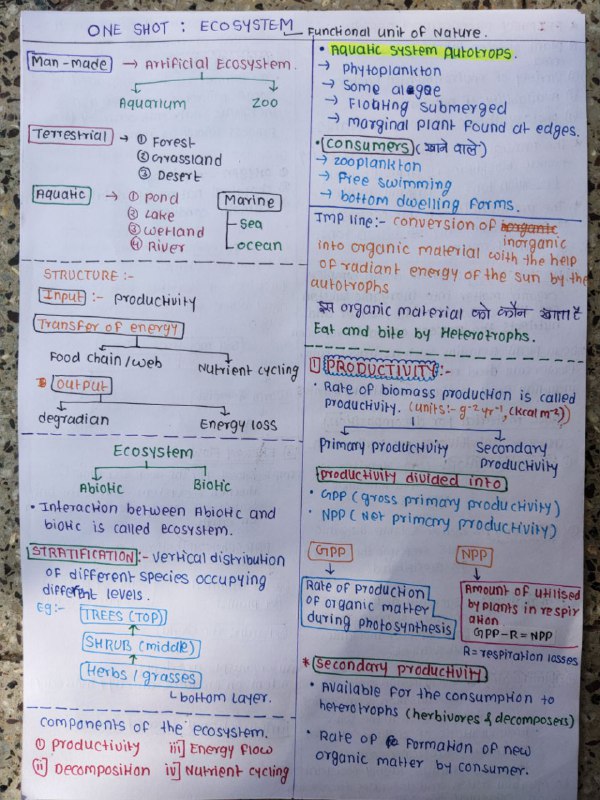 ONE SHOT : ECOSYSTEM Functional unit of Nature.
Man-made → Artificial Ecosystem.
Aquarium ZOO
Terrestrial → ① Forest
② Grassland
③ Desert
Aquatic → ① Pond
② Lake
③ Wetland
④ River
Marine
Sea
ocean
STRUCTURE :-
Input :- productivity
Transfer of energy
Food chain/web Nutrient cycling
Output
degradian Energy loss
Ecosystem
Abiotic Biotic
• Interaction between Abiotic and
biotic is called ecosystem.
STRATIFICATION :- vertical distribution
of different species occupying
different levels.
Eg:- TREES (TOP)
SHRUB (middle)
Herbs / grasses
bottom layer.
components of the ecosystem.
① Productivity iii] Energy flow
ii] Decomposition iv] Nutrient cycling
• Aquatic system Autotrops.
→ Phytoplankton
→ Some algae
→ Floating submerged
→ marginal plant found at edges.
• consumers (खाने वाले)
→ zooplankton
→ Free swimming
→ bottom dwelling forms.
IMP line:- conversion of inorganic
into organic material with the help
of radiant energy of the sun by the
autotrophs
इस organic material को कौन खाता है
Eat and bite by Heterotrophs.
① PRODUCTIVITY :-
• Rate of biomass production is called
productivity. (units:- g⁻² yr⁻¹, (kcal m⁻²))
Primary productivity Secondary
productivity
productivity divided into
• GPP (gross primary productivity)
• NPP (Net primary productivity)
GPP
Rate of production
of organic matter
during photosynthesis
NPP
Amount of utilised
by plants in respir
ation
GPP-R = NPP
R = respiration losses
* Secondary productivity
• Available for the consumption to
heterotrophs (herbivores & decomposers)
• Rate of Formation of new
organic matter by consumer.